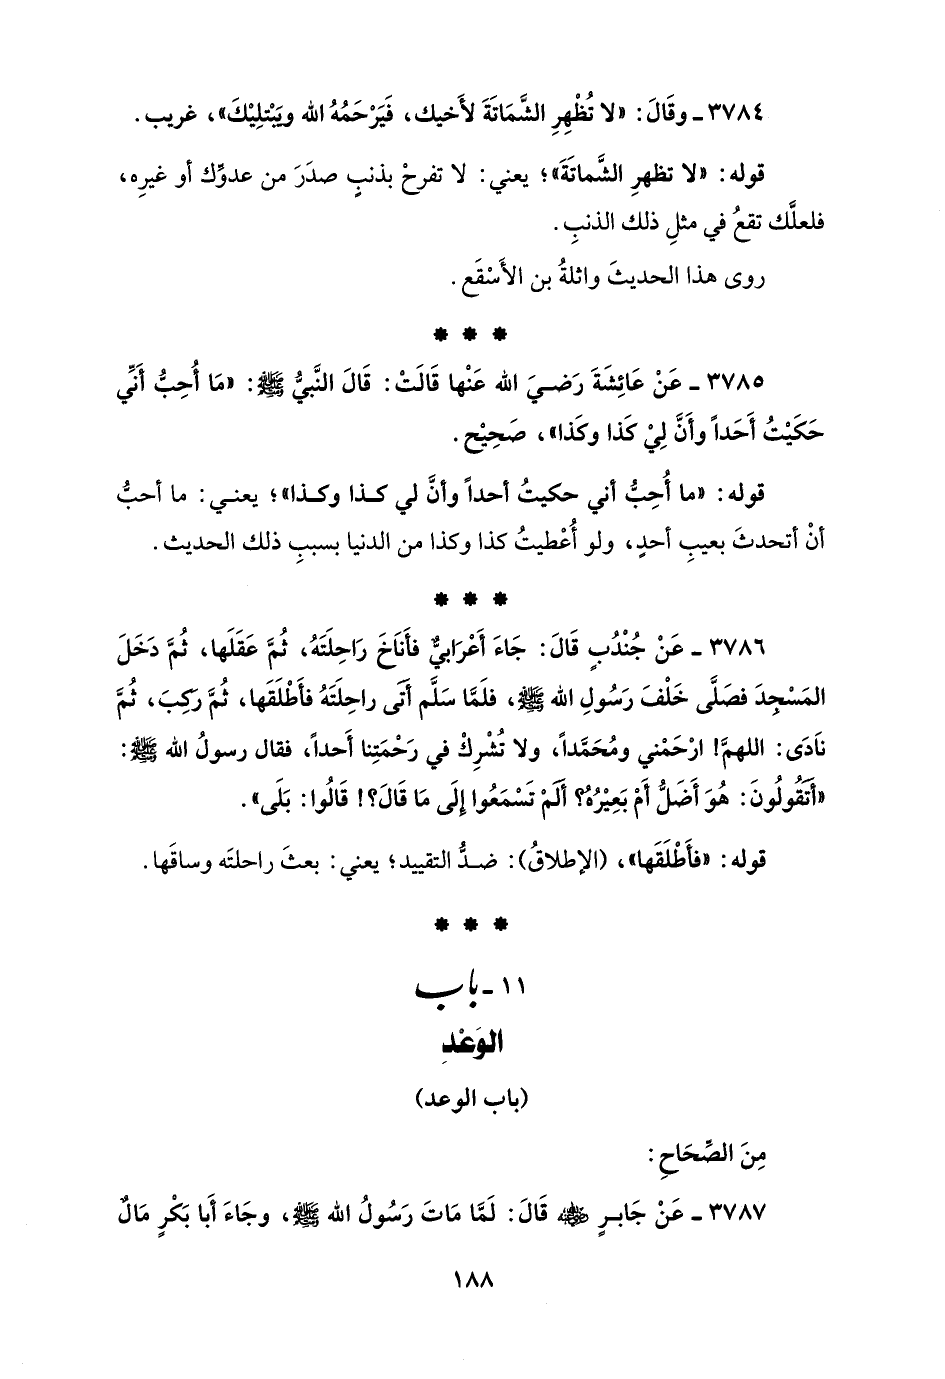 ٣٧٨٤ ـ وقَالَ: «لا تُظْهِرِ الشَّمَاتَةَ لأَخيك، فَيَرْحَمُهُ الله ويَبْتلِيْكَ»، غريب.
قوله: «لا تظهرِ الشَّماتَةَ»؛ يعني: لا تفرحْ بذنبٍ صدَرَ من عدوِّك أو غيرِه،
فلعلَّك تقعُ في مثلِ ذلك الذنبِ.
روى هذا الحديثَ واثلةُ بن الأَسْقَع.
* * *
٣٧٨٥ ـ عَنْ عَائِشَةَ رَضيَ الله عَنْها قَالَتْ: قَالَ النَّبيُّ ﷺ: «مَا أُحِبُّ أَنِّي
حَكَيْتُ أَحَداً وأَنَّ لِيْ كَذا وكَذا»، صَحِيْح.
قوله: «ما أُحِبُّ أني حكيتُ أحداً وأنَّ لي كـذا وكـذا»؛ يعنـي: ما أحبُّ
أنْ أتحدثَ بعيبِ أحدٍ، ولو أُعْطيتُ كذا وكذا من الدنيا بسببِ ذلك الحديث.
* * *
٣٧٨٦ ـ عَنْ جُنْدُبٍ قَالَ: جَاءَ أَعْرَابيٌّ فأَنَاخَ رَاحِلَتَهُ، ثُمَّ عَقَلَها، ثُمَّ دَخَلَ
المَسْجِدَ فصَلَّى خَلْفَ رَسُولِ الله ﷺ، فلَمَّا سَلَّم أَتَى راحِلتَهُ فأَطْلَقَها، ثُمَّ رَكِبَ، ثُمَّ
نَادَى: اللهمَّ! ارْحَمْني ومُحَمَّداً، ولا تُشْرِكْ في رَحْمَتِنا أَحداً، فقال رسولُ الله ﷺ:
«أَتَقُولُونَ: هُوَ أَضَلُّ أَمْ بَعِيْرُهُ؟ أَلَمْ تَسْمَعُوا إِلَى مَا قَالَ؟! قَالُوا: بَلَى».
قوله: «فأَطْلَقَها»، (الإطلاقُ): ضـدُّ التقييد؛ يعني: بعثَ راحلتَه وساقَها.
* * *
١١ ـ باب
الوَعْدِ
(باب الوعد)
مِنَ الصِّحَاحِ:
٣٧٨٧ ـ عَنْ جَابـرٍ ﵁ قَالَ: لَمَّا مَاتَ رَسُولُ الله ﷺ، وجَاءَ أَبا بَكْرٍ مَالٌ
١٨٨